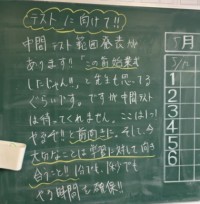 テストに向けて!!
中間テスト範囲発表が
あります!!「この前始業式
したじゃん!!」と先生も思ってる
ぐらいです。ですが中間テスト
は待ってくれません。ここは1つ
やるぞ!!と前向きに。そして、今
大切なことは学習に対して向き
合うこと!! 1分でも、1秒でも
やる時間を確保!!
5月
1
2
3
4
5
6